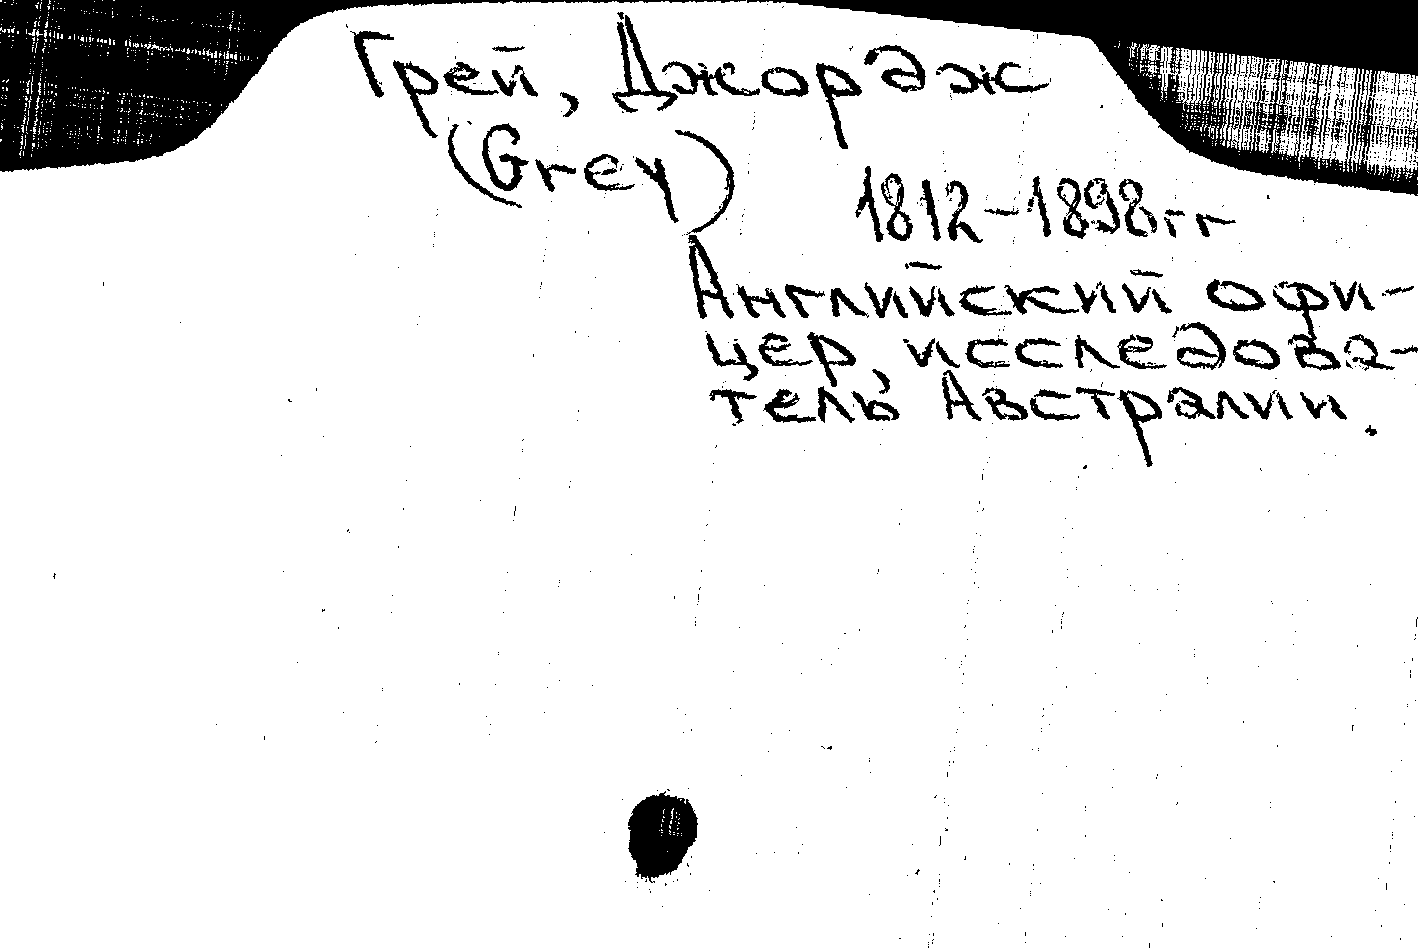 Грей, Джордж
(Grey)
1812-1898гг
Английский офи-
цер, исследова-
тель Австралии.